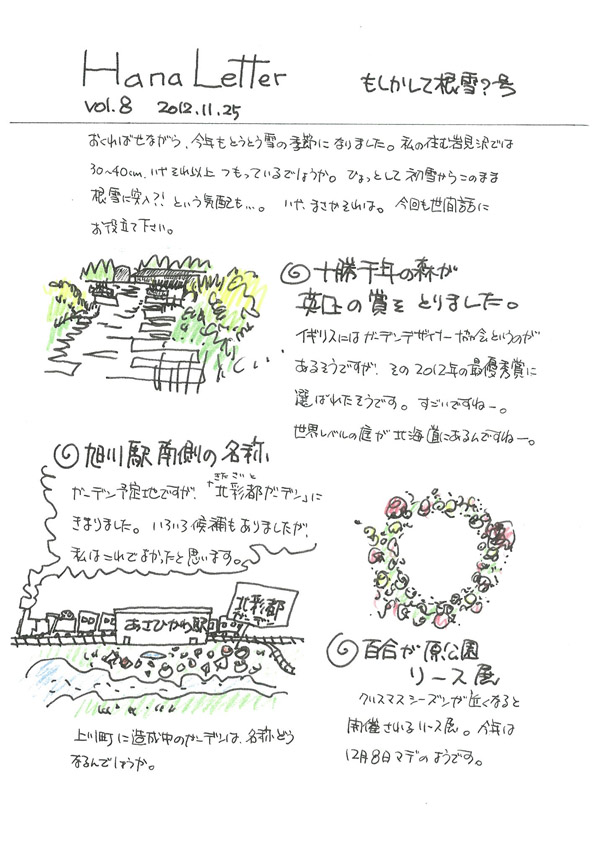 Hana Letter
もしかして根雪?号
vol.8 2012.11.25
おくればせながら、今年もとうとう雪の季節になりました。私の住む岩見沢では
30〜40cm、いやそれ以上つもっているでしょうか。ひょっとして初雪からこのまま
根雪に突入?!という気配も…。いや、まさかそれは。今回も世間話に
お役立て下さい。
十勝千年の森が
英国の賞をとりました。
イギリスにはガーデンデザイナーズ協会というのが
あるそうですが、その2012年の最優秀賞に
選ばれたそうです。すごいですねー。
世界レベルの庭が北海道にあるんですねー。
旭川駅南側の名称
きたさいと
ガーデン予定地ですが、「北彩都ガーデン」に
きまりました。いろいろ候補もありましたが、
私はこれでよかったと思います。
北彩都
ガーデン
あさひかわ駅
上川町に造成中のガーデンは、名称どう
なるんでしょうか。
百合が原公園
リース展
クリスマスシーズンが近くなると
開催されるリース展。今年は
12月8日マデのようです。